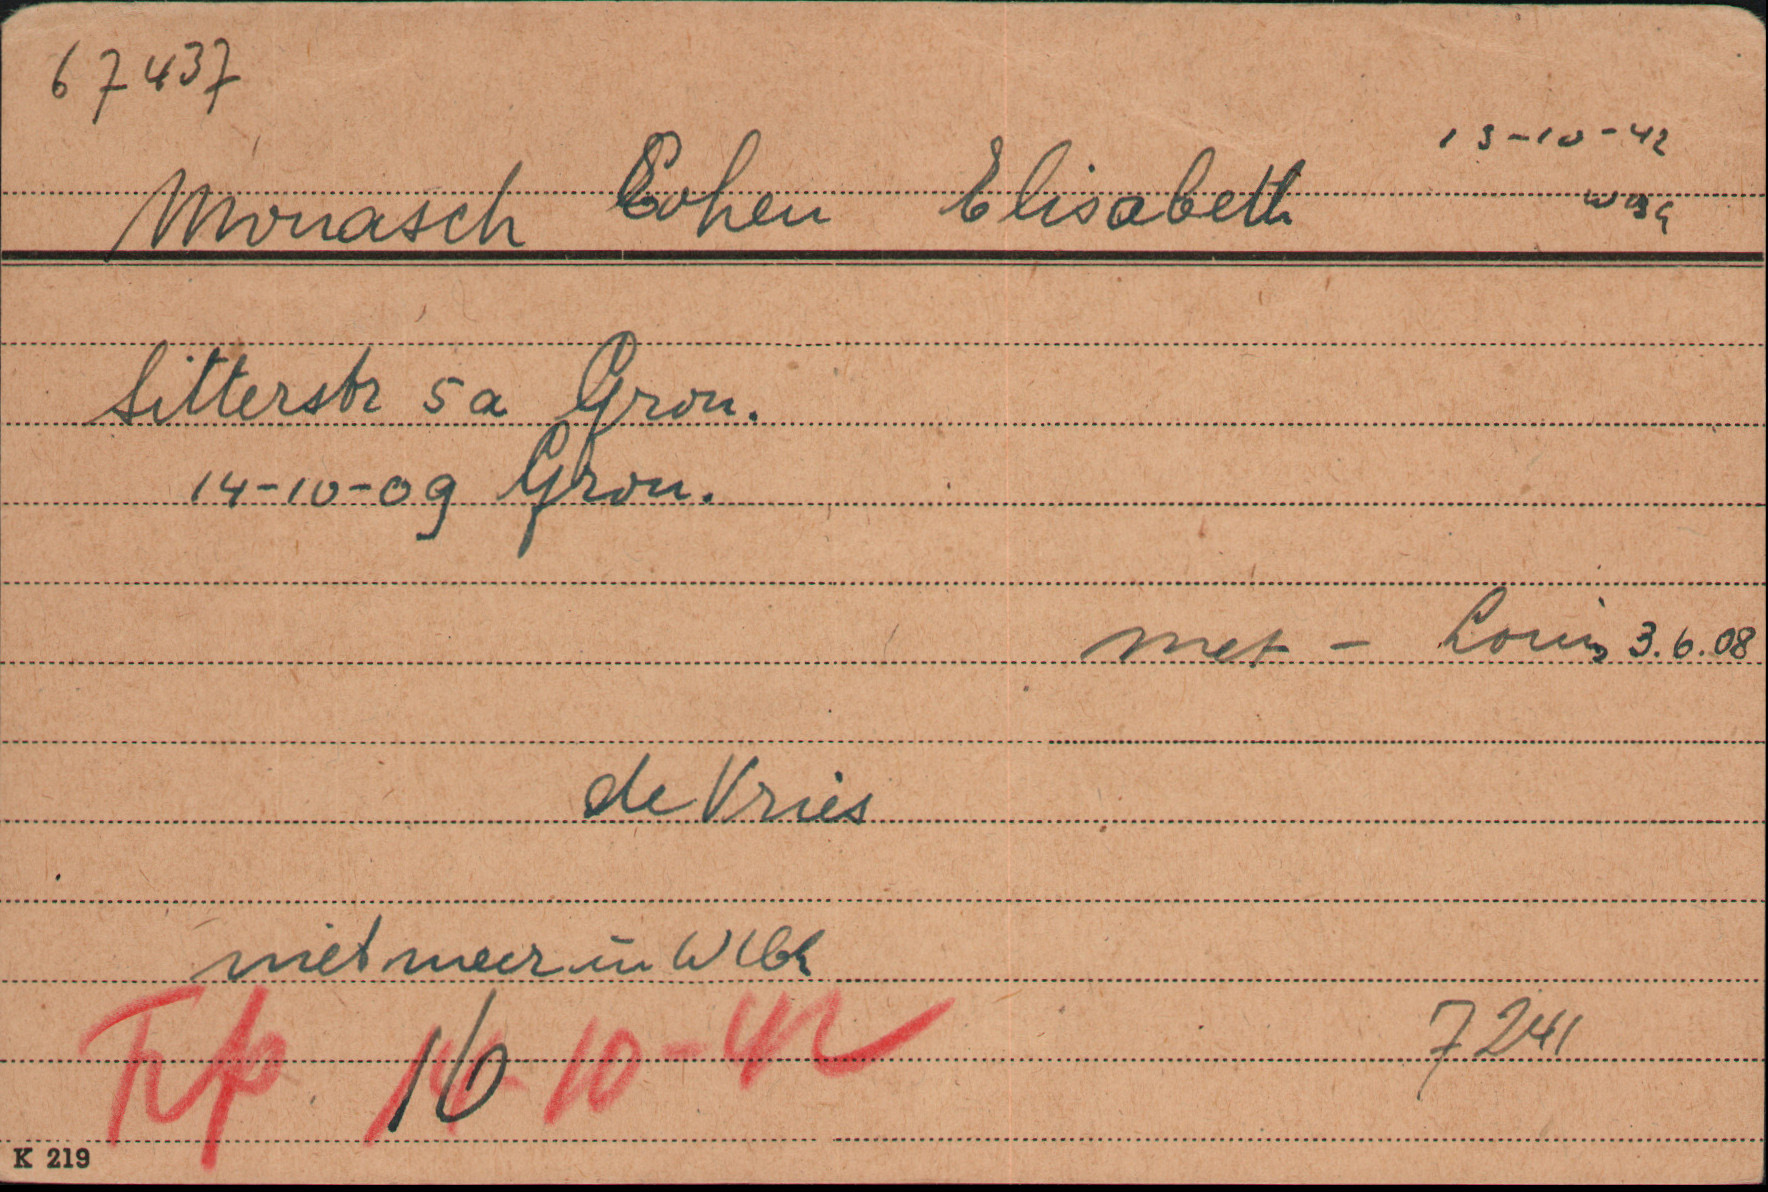 67437
13-10-42
Monasch Cohen Elisabeth
Sitterstr 5a Gron.
14-10-09 Gron.
met - Louis 3.6.08
de Vries
niet meer in
Trp 16 10-42
7241
K 219